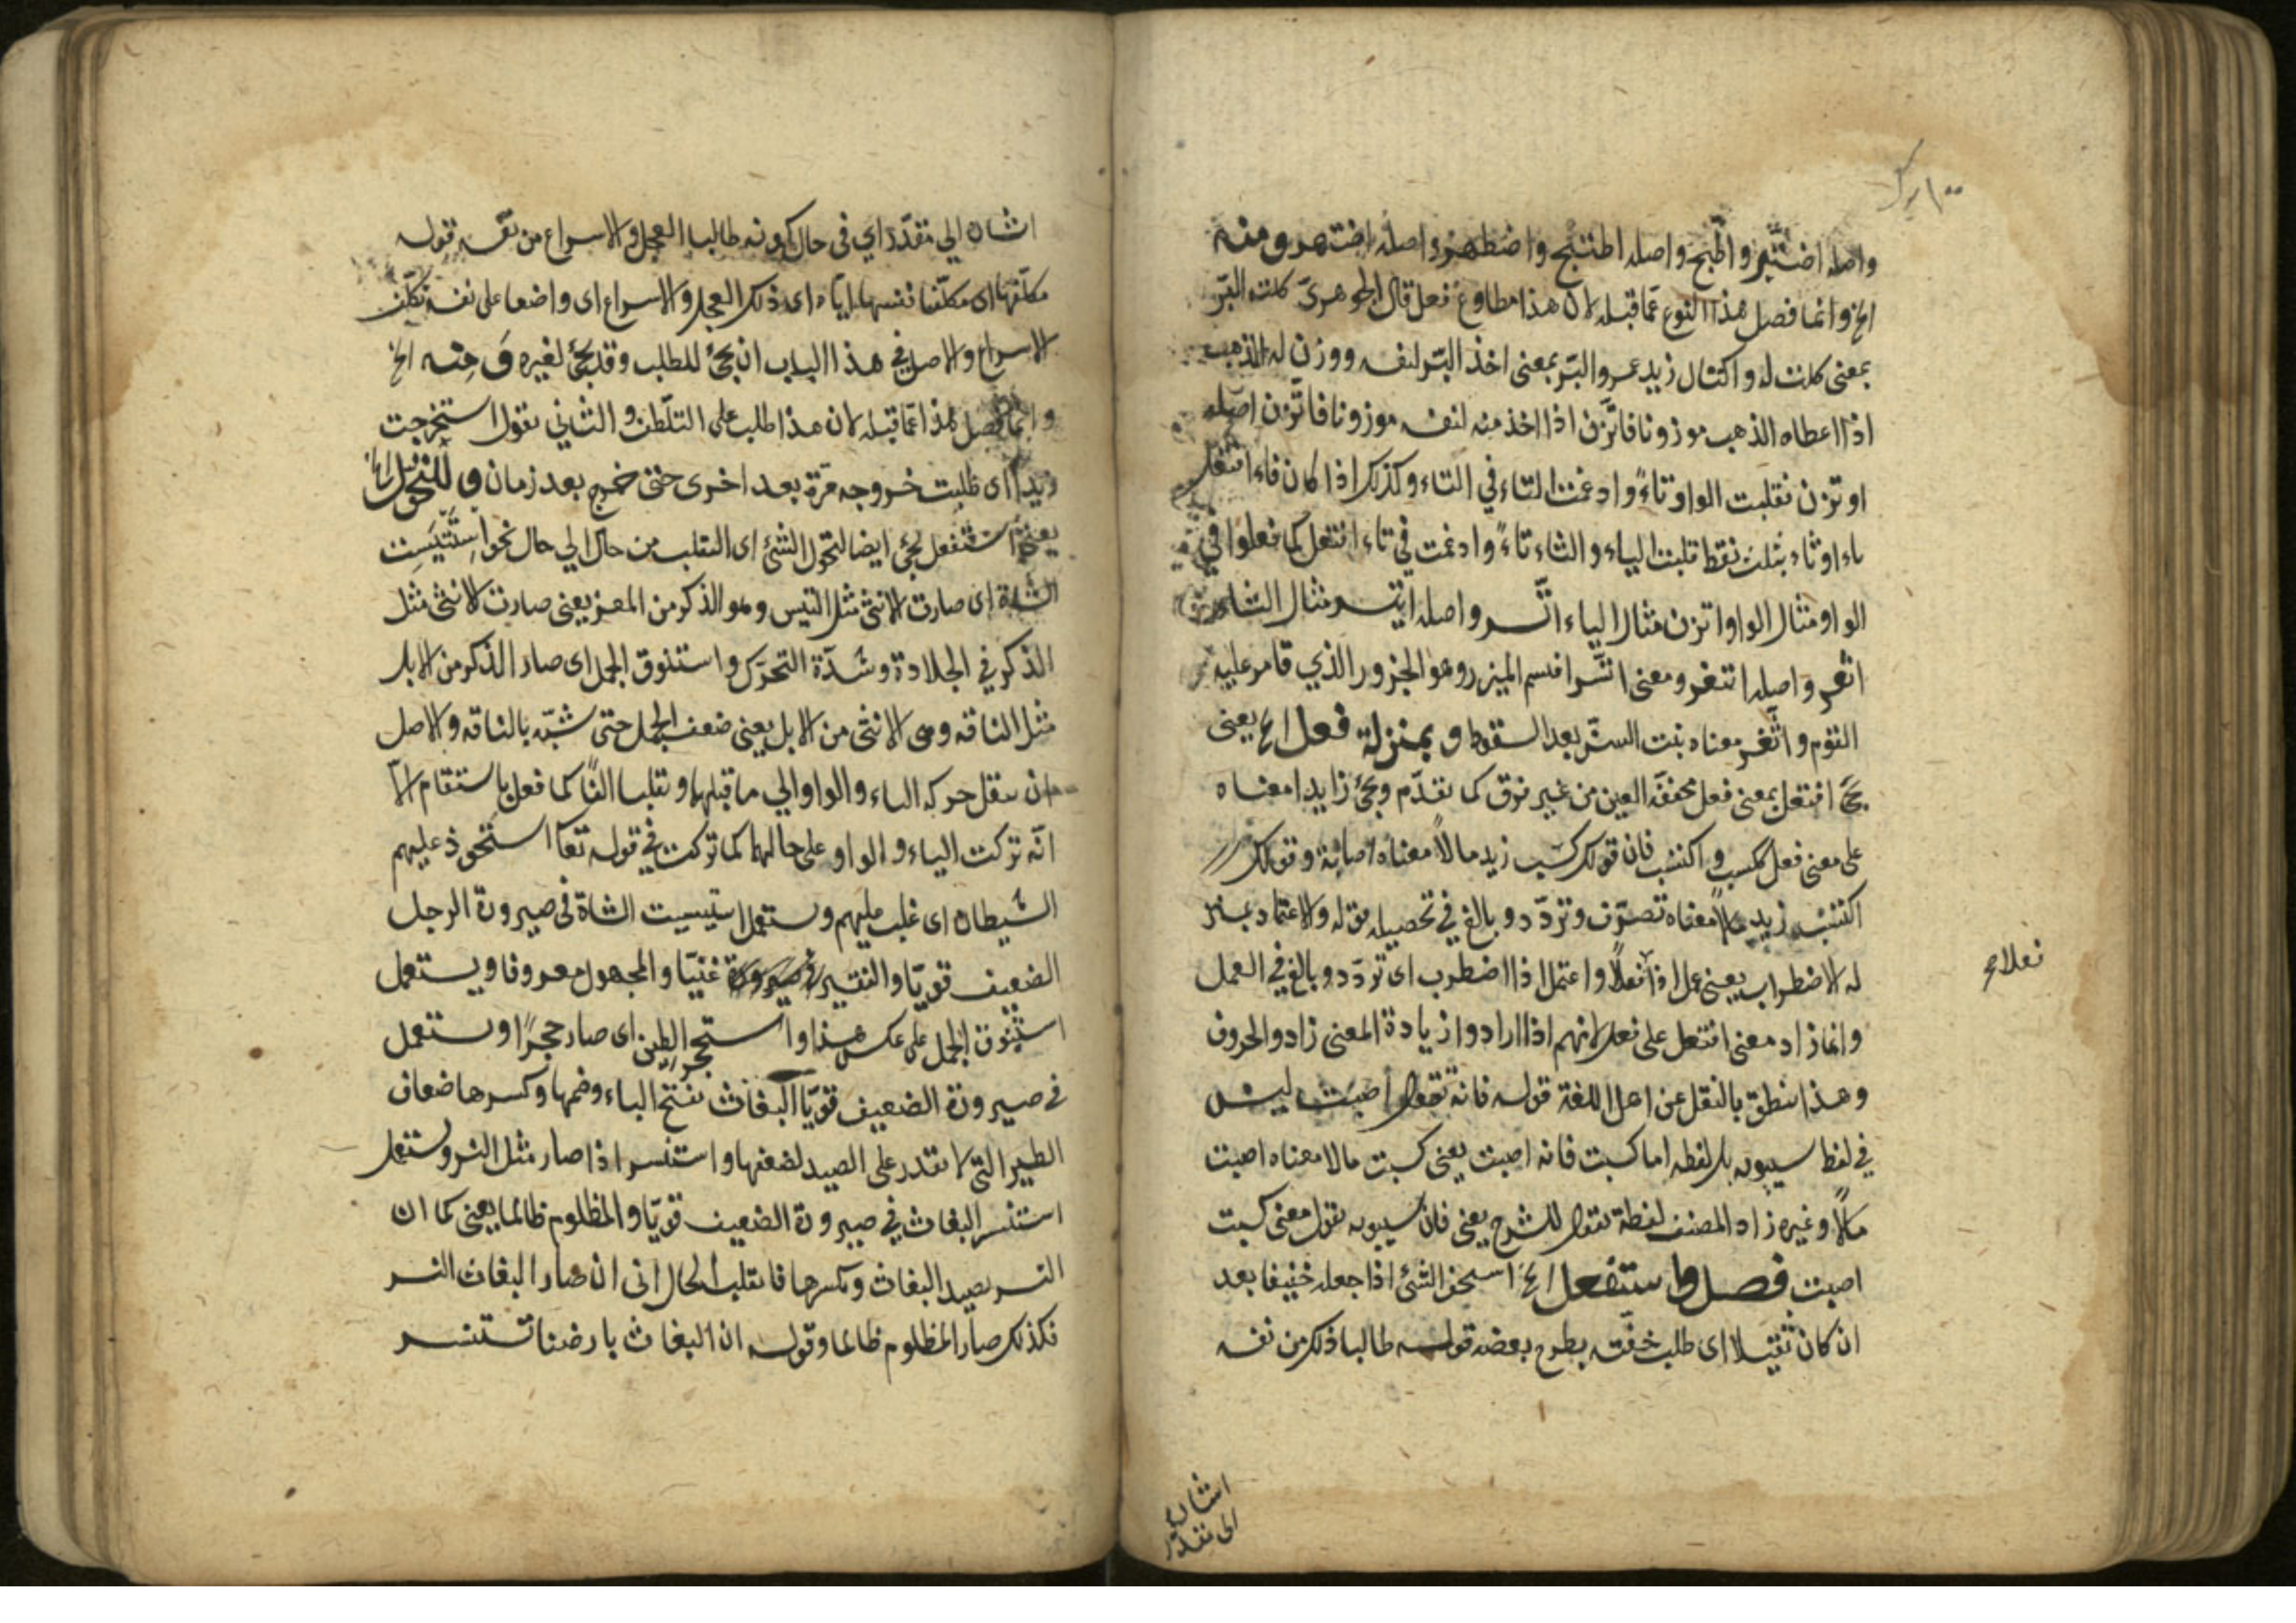 واصله اضتبر واطبخ واصله اطتبخ واضطهر واصله اضتهر ومنه
الخ وانما فصل هذا النوع عما قبله لان هذا مطاوع فعل قال الجوهرى كلته البر
بمعنى كلت له واكتال زيد عمرو البر بمعنى اخذ البر لنفسه ووزن له الذهب
اذا اعطاه الذهب موزونا فاتزن اذا اخذ منه لنفسه موزونا فاتزن اصله
اوتزن فقلبت الواو تاءً وادغمت التاء في التاء وكذلك اذا كان فاء افتعل
ياء او ثاء بثلث نقط قلبت الياء والثاء تاءً وادغمت في تاء افتعل كما فعلوا في
الواو مثال الواو اتزن مثال الياء اتسر واصله ايتسر مثال الثاء
اتغر واصله اثتغر ومعنى اتسر اقتسم الميسر وهو الجزور الذي قامر عليه
القوم واتغر معناه نبت السن بعد السقوط وبمنزلة فعل الخ يعنى
يجئ افتعل بمعنى فعل مخففة العين من غير فرق كما تقدم ويجئ زايدا معناه
على معنى فعل ككسب واكتسب فان قولك كسب زيد مالاً معناه اصابه وقولك
اكتسب زيد مالاً معناه تصرف وتردد وبالغ في تحصيله قوله والاعتماد بمنزلة
له الاضطراب يعنى عمل اذا فعلاً واعتمل اذا اضطرب اى تردد وبالغ في العمل
وانما زاد معنى افتعل على فعل لانهم اذا ارادوا زيادة المعنى زادوا الحروف
وهذا ينطق بالنقل عن اهل اللغة قوله فانه تقول اصبت ليس
في لفظ سيبويه بل لفظه اما كسبت فانه اصبت يعنى كسبت مالا معناه اصبت
مالاً وغيره زاد المصنف لفظة تقول للشرح يعنى فان سيبويه يقول معنى كسبت
اصبت فصل واستفعل الخ استخف الشئ اذا جعله خفيفا بعد
ان كان ثقيلا اى طلب خفته بطرح بعضه قوله طالبا ذلك من نفسه
فعلا صح
اشارة
الى تقدير
اشارة الي تقدير اي في حال كونه طالبا العجل والاسراع من نفسه قوله
مكلفها اى مكلفا نفسها اياه اى ذلك العجل والاسراع اى واضعا على نفسه تكلف
الاسراع والاصل في هذا الباب ان يجئ للطلب وقد يجئ لغيره ومنه الخ
وانما فصل هذا عما قبله لان هذا طلب على التلطف والثاني تقول استخرجت
زيدا اى طلبت خروجه مرة بعد اخرى حتى خرج بعد زمان وللتحول الخ
يعنى استفعل يجئ ايضا لتحول الشئ اى التقلب من حال الي حال نحو استتيست
الشاة اى صارت الانثى مثل التيس وهو الذكر من المعز يعنى صارت الانثى مثل
الذكر في الجلادة وشدة التحرك واستنوق الجمل اى صار الذكر من الابل
مثل الناقه وهى الانثى من الابل يعنى ضعف الجمل حتى شبه بالناقه والاصل
ان ينقل حركه الياء والواو الي ما قبلها وتقلبا الفاً كما فعل باستقام الا
انه تركت الياء والواو على حالهما كما تركت في قوله تعا استحوذ عليهم
الشيطان اى غلب عليهم ويستعمل استتيست الشاة في صيرورة الرجل
الضعيف قويا والفقير غنيا والمجهول معروفا ويستعمل
استنوق الجمل على عكس هذا واستحجر الطين اى صار حجراً ويستعمل
في صيرورة الضعيف قويا البغاث بفتح الباء وضمها وكسرها ضعاف
الطير التى لا يقدر على الصيد لضعفها واستنسر اذا صار مثل النسر ويستعمل
استنسر البغاث في صيرورة الضعيف قويا والمظلوم ظالما يعنى كما ان
النسر يصيد البغاث ويكسرها فانقلب الحال انى ان صار البغاث النسر
فكذلك صار المظلوم ظالما وقوله ان البغاث بارضنا تستنسر